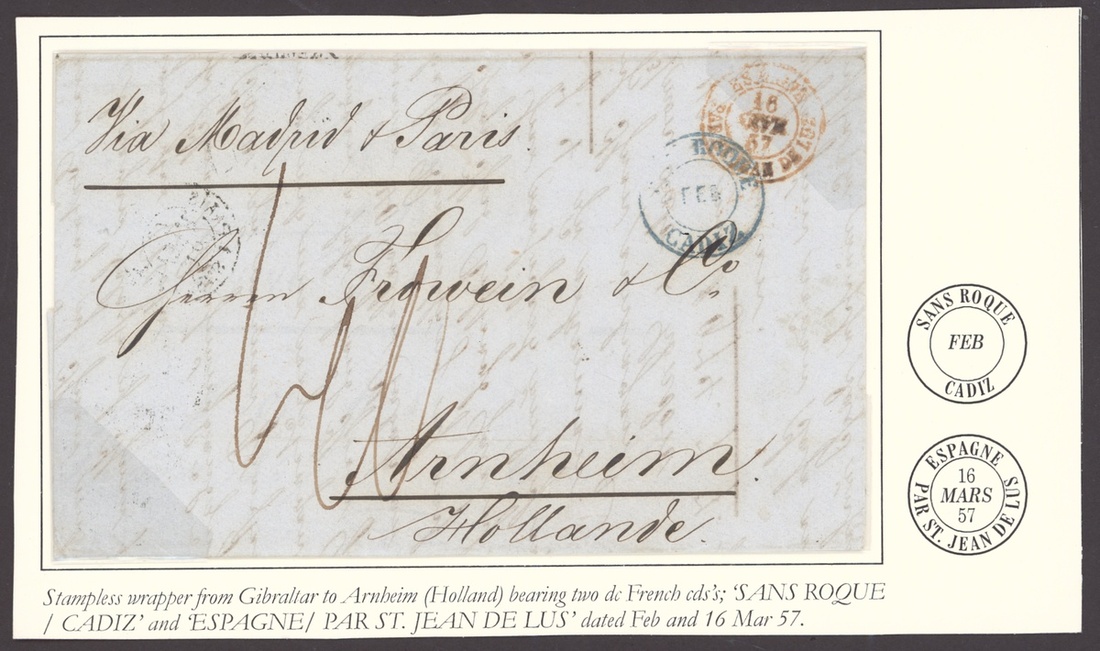 Via Madrid & Paris.
16
MARS
57
AN DE LUS
ROQUE
FEB
CADIZ
Herren Frowein & Co.
Arnheim
Hollande.
SANS ROQUE
FEB
CADIZ
ESPAGNE
16
MARS
57
PAR ST. JEAN DE LUS
Stampless wrapper from Gibraltar to Arnheim (Holland) bearing two dc French cds's; 'SANS ROQUE
/ CADIZ' and 'ESPAGNE/ PAR ST. JEAN DE LUS' dated Feb and 16 Mar 57.